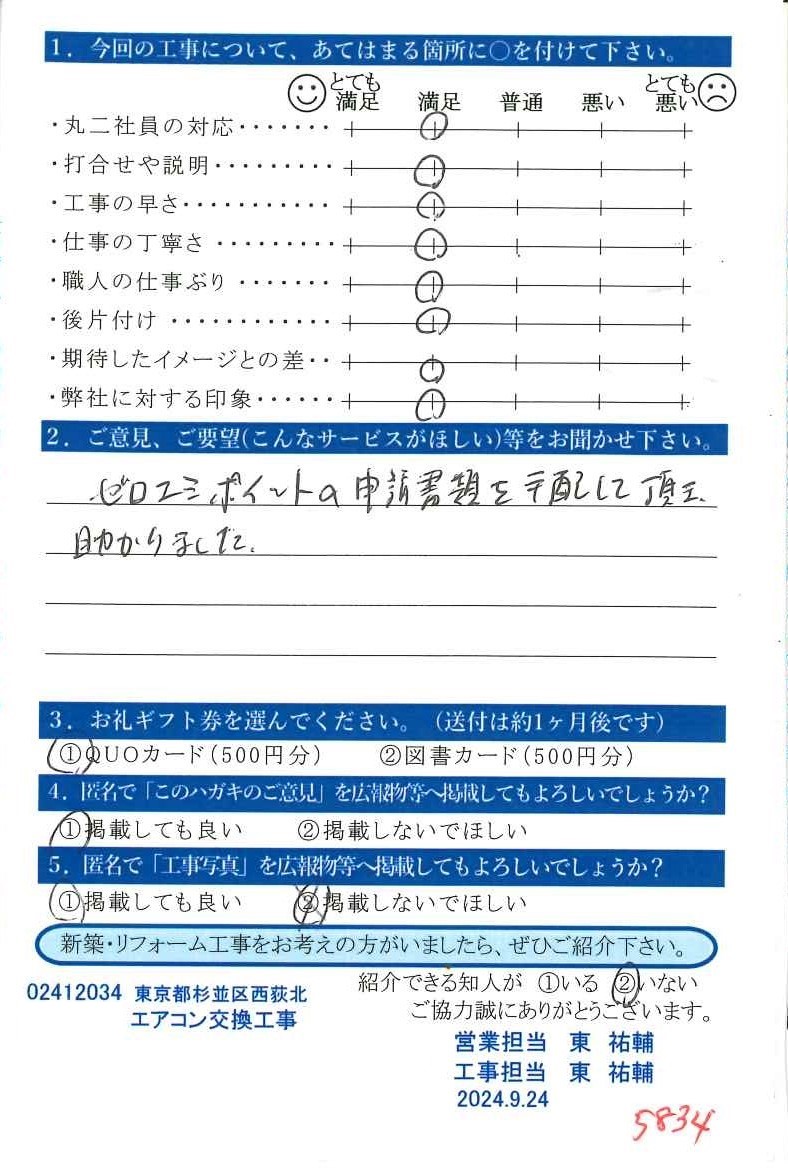 1．今回の工事について、あてはまる箇所に○を付けて下さい。
とても満足 満足 普通 悪い とても悪い
・丸二社員の対応・・・・・・・
・打合せや説明・・・・・・・・・
・工事の早さ・・・・・・・・・・・
・仕事の丁寧さ ・・・・・・・・・
・職人の仕事ぶり ・・・・・・・
・後片付け ・・・・・・・・・・・・
・期待したイメージとの差・・
・弊社に対する印象・・・・・・
2．ご意見、ご要望(こんなサービスがほしい)等をお聞かせ下さい。
ゼロエミポイントの申請書類を手配して頂き、
助かりました。
3．お礼ギフト券を選んでください。（送付は約1ヶ月後です）
①QUOカード(500円分) ②図書カード(500円分)
4．匿名で「このハガキのご意見」を広報物等へ掲載してもよろしいでしょうか？
①掲載しても良い ②掲載しないでほしい
5．匿名で「工事写真」を広報物等へ掲載してもよろしいでしょうか？
①掲載しても良い ②掲載しないでほしい
新築・リフォーム工事をお考えの方がいましたら、ぜひご紹介下さい。
紹介できる知人が ①いる ②いない
ご協力誠にありがとうございます。
02412034 東京都杉並区西荻北
エアコン交換工事
営業担当 東 祐輔
工事担当 東 祐輔
2024.9.24
5834